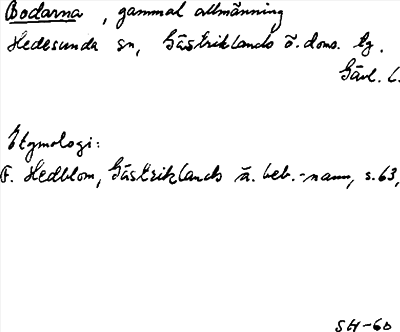 Bodarna, gammal allmänning
Hedesunda sn, Gästriklands ö. doms. tg.
Gävl. l.
Etymologi:
F. Hedblom, Gästriklands ä. beb.-namn, s. 63,
SH-60